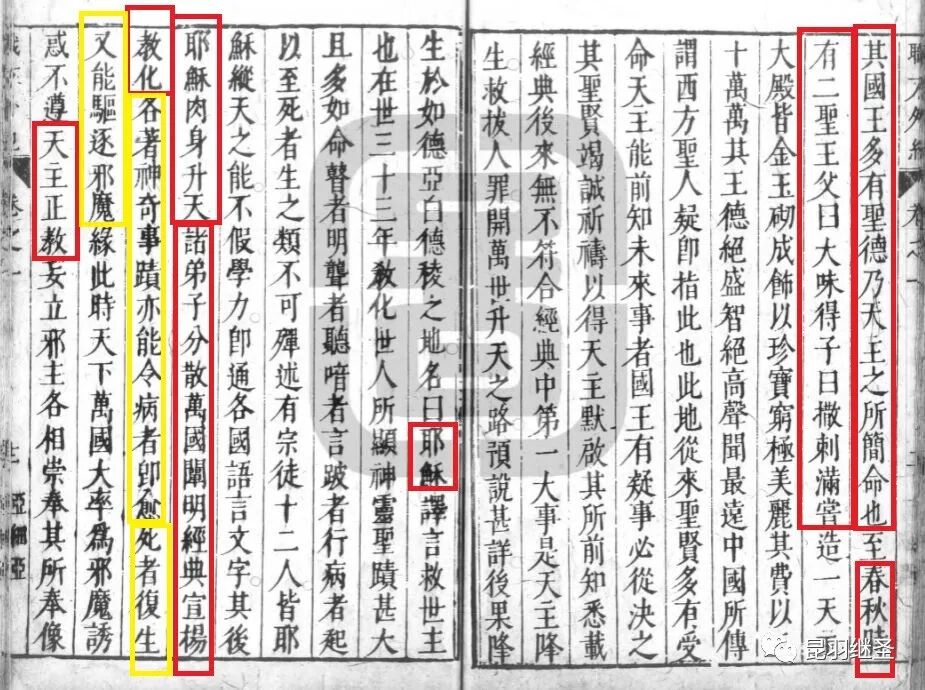 其國王多有聖德乃天主之所簡命也至春秋時
有二聖王父曰大味得子曰撒剌滿嘗造一天
大殿皆金玉砌成飾以珍寶窮極美麗其費以
十萬萬其王德絕盛智絕高聲聞最遠中國所傳
謂西方聖人疑卽指此也此地從來聖賢多有受
命天主能前知未來事者國王有疑事必從決之
其聖賢竭誠祈禱以得天主默啟其所前知悉載
經典後來無不符合經典中第一大事是天主降
生救拔人罪開萬世升天之路預說甚詳後果降
生於如德亞白德稜之地名曰耶穌譯言救世主
也在世三十三年敎化世人所顯神靈聖蹟甚大
且多如命瞽者明聾者聽喑者言跛者行病者起
以至死者生之類不可殫述有宗徒十二人皆耶
穌縱天之能不假學力卽通各國語言文字其後
耶穌肉身升天諸弟子分散萬國闡明經典宣楊
教化各著神奇事蹟亦能令病者卽愈死者復生
又能驅逐邪魔緣此時天下萬國大率爲邪魔誘
惑不遵天主正教妄立邪主各相崇奉其所奉像
亞細亞
昆羽继圣